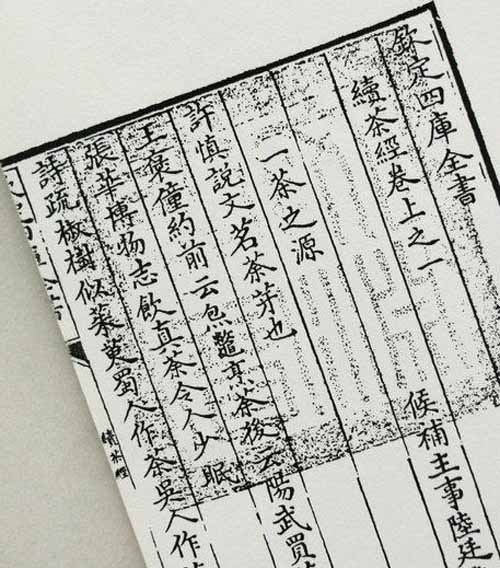 欽定四庫全書
續茶經卷上之一
候補主事陸廷
一茶之源
許慎說文茗茶芽也
王褒僮約前云炰鼈烹茶後云陽武買
張華博物志飲真茶令人少眠
詩疏椒樹似茱萸蜀人作茶吳人作
續茶經